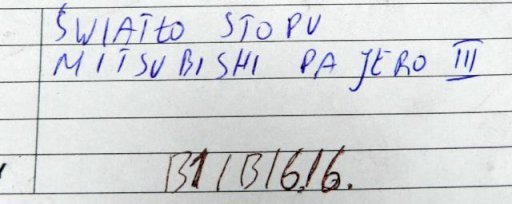 ŚWIATŁO STOPU
MITSUBISHI PAJERO III
B1/B/6/6.